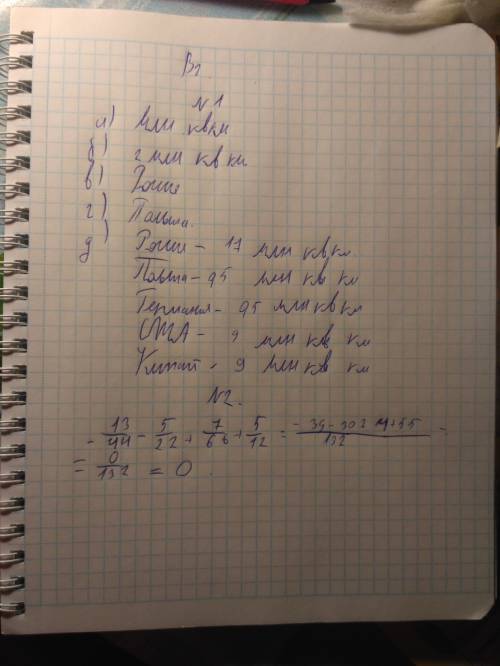 В2.
N1
а) Млн кв км
б) 2 млн кв км
в)
г) Польша.
д) – 17 млн кв км
Польша – 0,5 млн кв км
Германия – 0,5 млн кв км
США – 9 млн кв км
Китай - 9 млн кв км
N2.
- 13/44 - 5/22 + 7/66 + 5/12 = - 39 - 30 + 14 + 55 / 132 =
= 0/132 = 0.